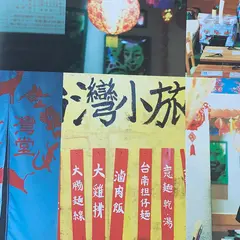 台灣小旅
灣堂
大腸麵線
大雞排
滷肉飯
台南担仔麵
意麵乾湯